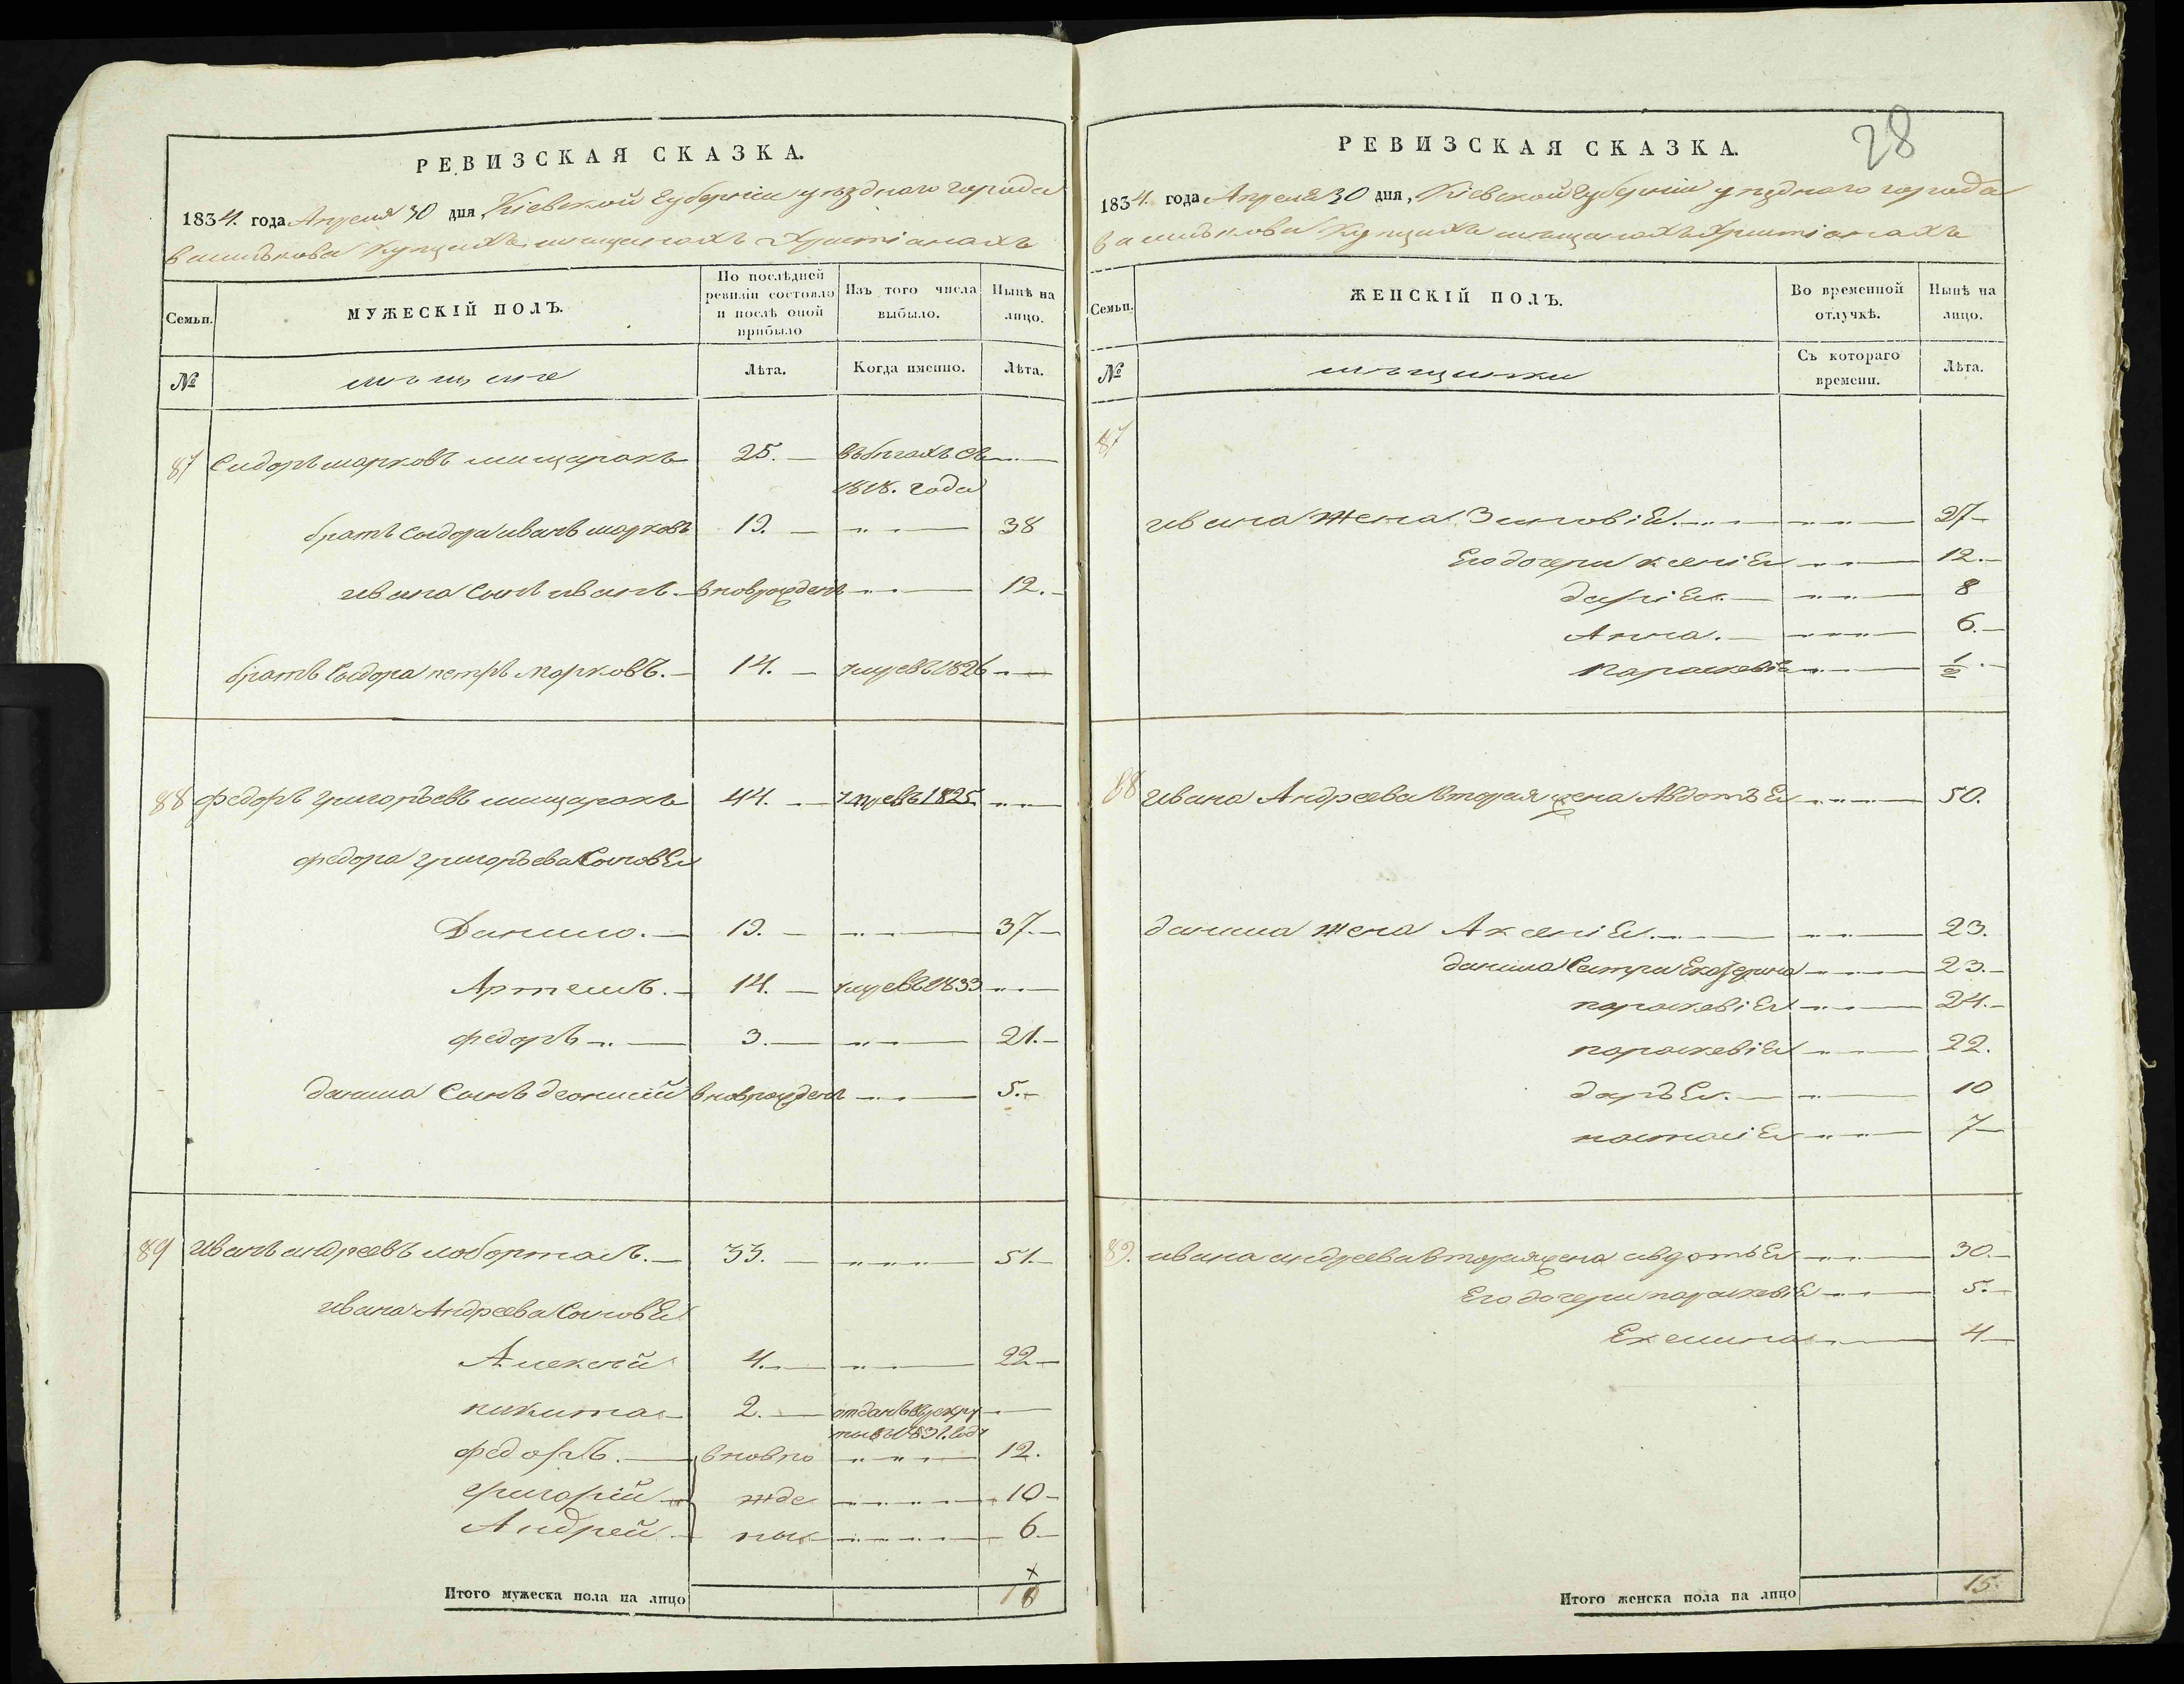 РЕВИЗСКАЯ СКАЗКА.
1834. года Апреля 30 дня, Кіевской Губерніи уезднаго города
василькова Купцахъ мещанахъ Христіанахъ
Семьи.
МУЖЕСКІЙ ПОЛЪ.
По послѣдней ревизіи состояло и послѣ оной прибыло
Изъ того числа выбыло.
Нынѣ на лицо.
№
мещане
Лѣта.
Когда именно.
Лѣта.
87 Сидоръ марковъ 25. въ бегахъ съ
1818. года
братъ Сыдора иванъ марковъ 19. 38
ивана Сынъ иванъ. вноврожденъ 12.
братъ Сыдора петръ марковъ. 14. умре въ 1826
88 федоръ григорьевъ 44. умре въ 1825
федора григорьева Сыновья
Данило. 19. 37.
Артемъ. 14. умре въ 1833
федоръ 3. 21.
данила Сынъ деонисій вноврожденъ 5.
89 иванъ андреевъ 33. 51.
Ивана Андреева Сыновья
Алексей 4. 22
никита 2. отданъ в рекру
ты в 1831. году
федоръ. вновро 12.
григорій жде 10
Андрей ны 6
Итого мужеска пола на лицо 10
28
РЕВИЗСКАЯ СКАЗКА.
1834. года Апреля 30 дня, Кіевской Губерніи уезднаго города
василькова Купцахъ мещанахъ Христіанахъ
Семьи.
ЖЕНСКІЙ ПОЛЪ.
Во временной отлучкѣ.
Нынѣ на лицо.
№
мещанки
Съ котораго времени.
Лѣта.
87
ивана жена Зиновія 37
Его дочери ксенія 12.
дарія 8
Анна. 6.
параскевія 1/2
88 Ивана Андреева вторая жена Авдотья 50.
данила жена Аксенія 23.
данила Сестри Екатерина 23.
параскевія 24.
параскевія 22.
дарья. 10
настасія 7
89. ивана андреева вторая жена авдотья 30.
Его дочери параскевія 5.
4
Итого женска пола на лицо 15.